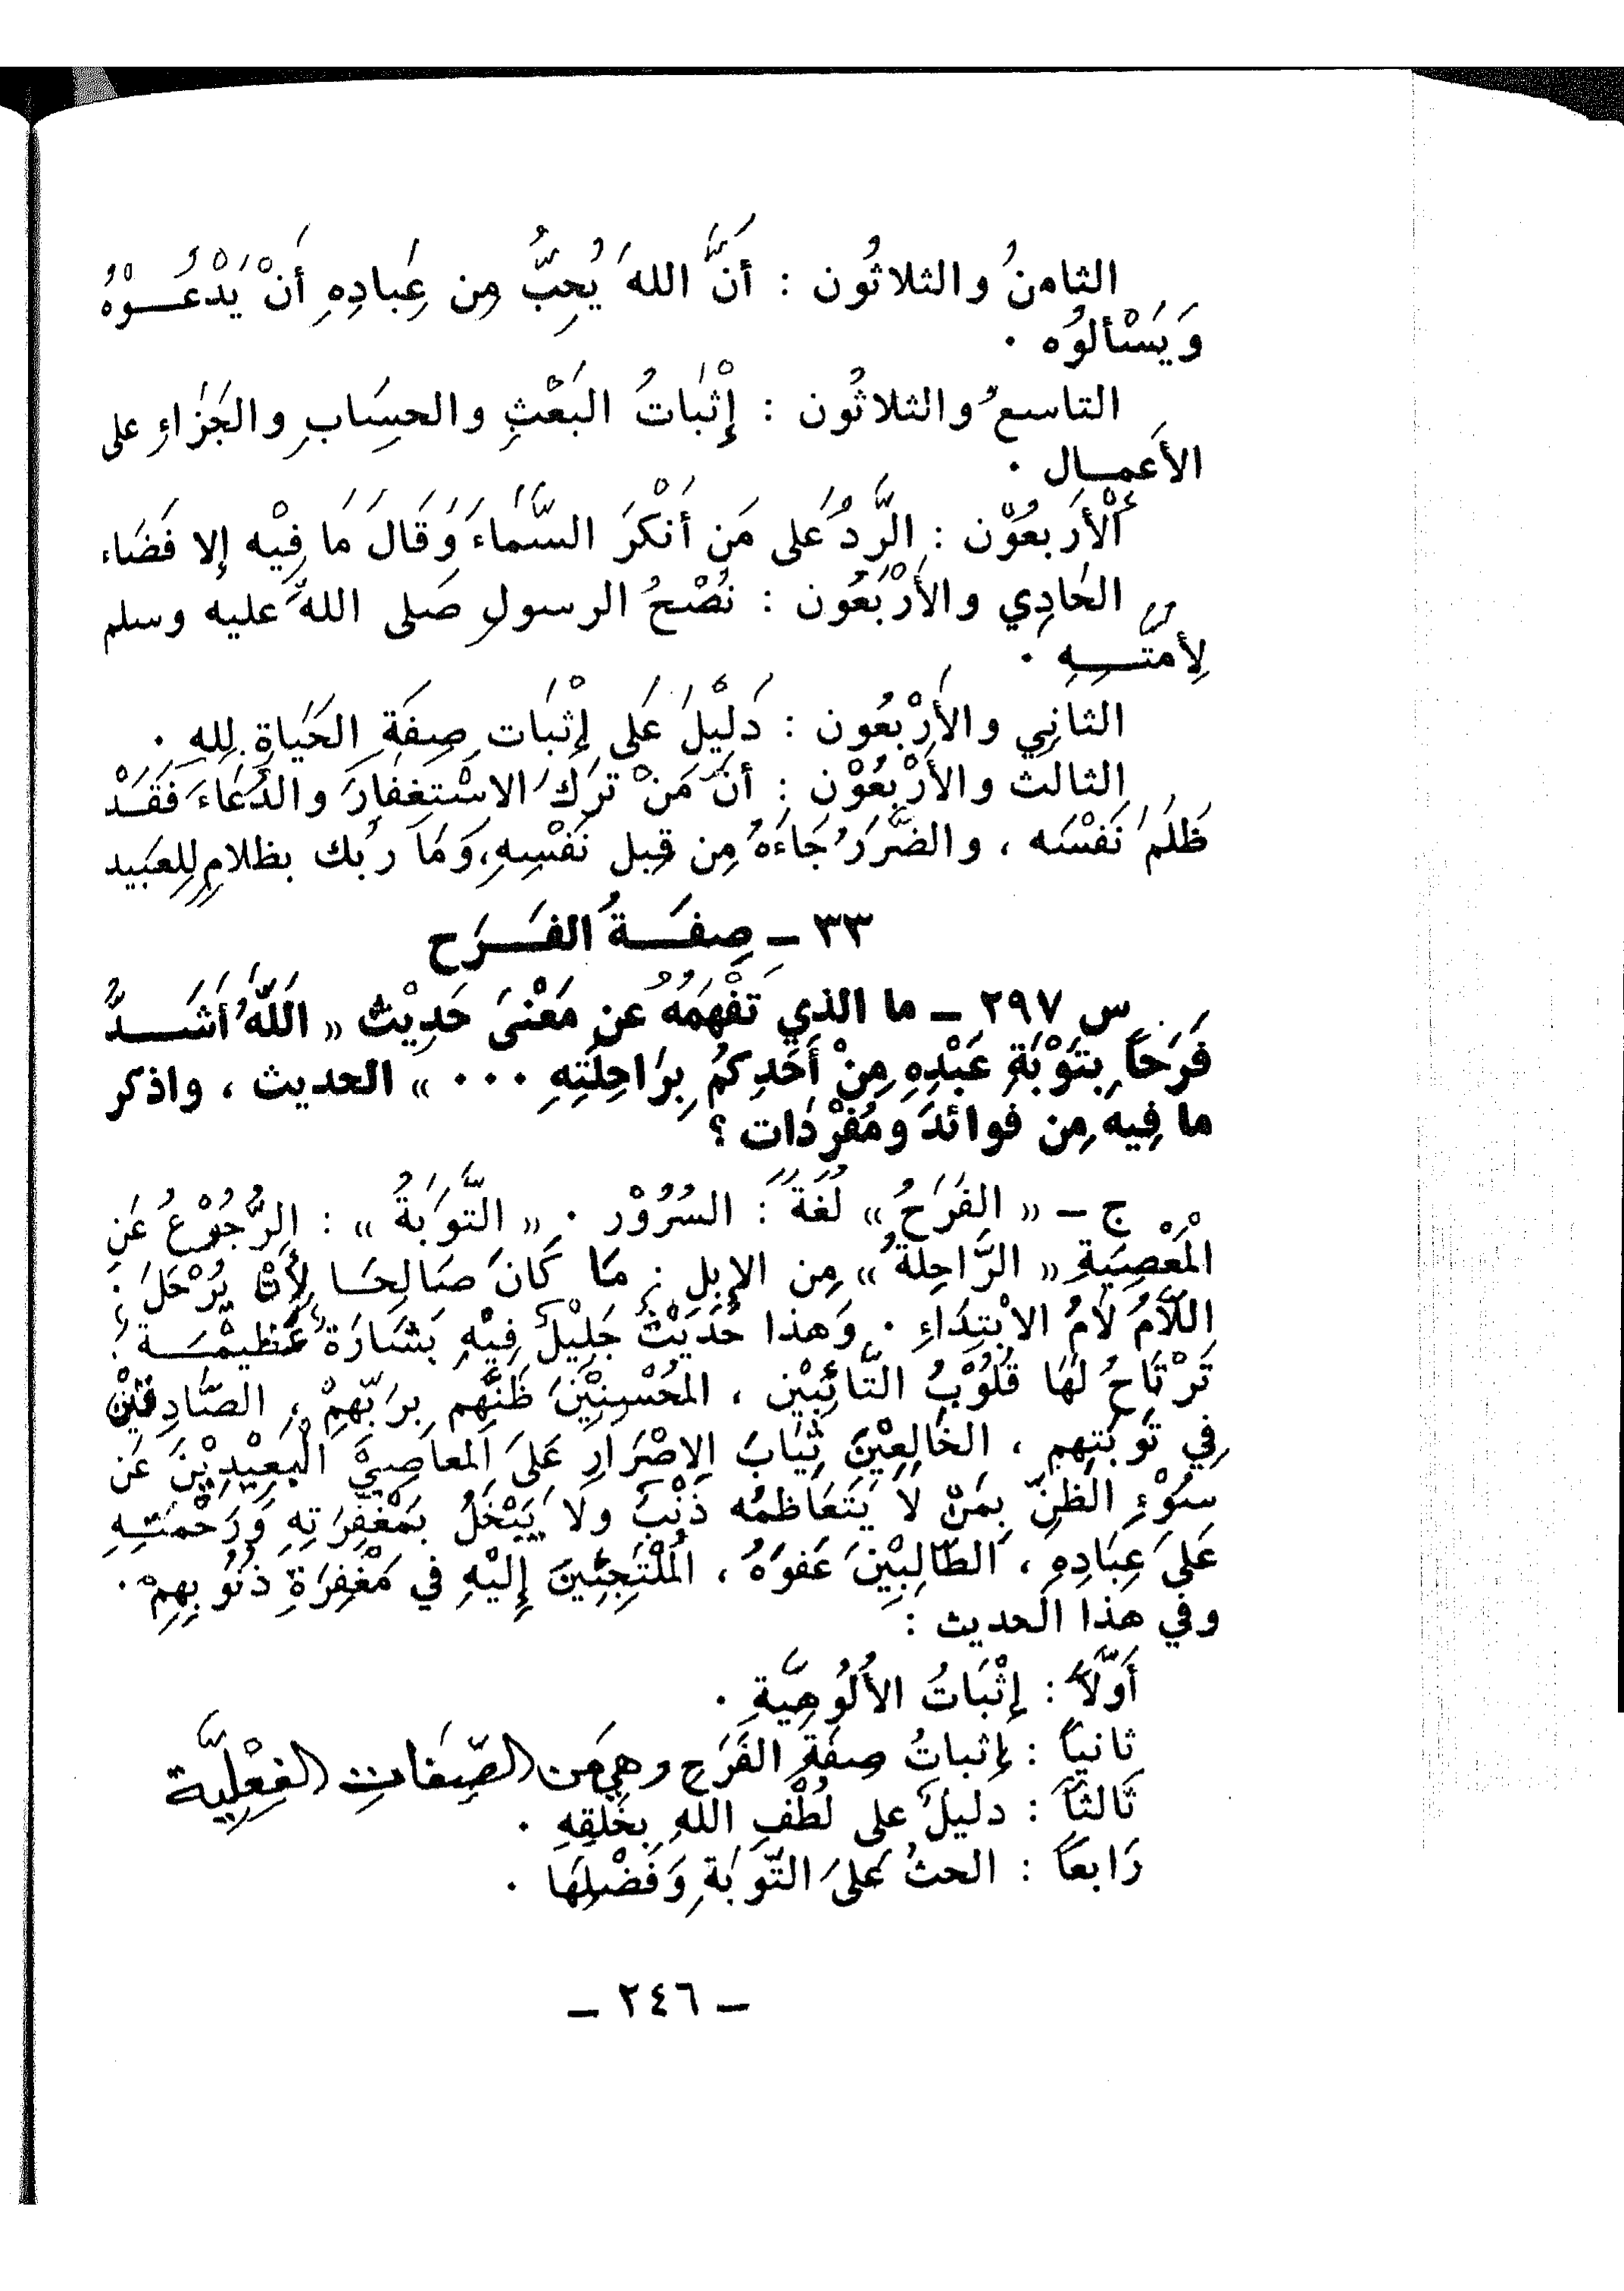 الثامنُ والثلاثُون : أنَّ اللهَ يُحِبُّ مِن عِبادِهِ أنْ يَدْعُـــوْهُ
وَيَسْألوُه .
التاسعُ والثلاثُون : إِثْباتُ البَعْثِ والحسَابِ والجَزَاءِ على
الأعمـــال .
اْلأَربعُوْن : الرَّدُ عَلى مَن أنْكَرَ السَّمَاءَ وَقَالَ مَا فِيْه إلا فَضَاء
الحَادِي والأَرْبَعُون : نُصْحُ الرسولِ صَلى اللهَ عليه وسلم
لِأمتَّـــــهِ .
الثانِي والأَرْبعُون : دَلِيْلَ عَلى إثْبَات صِفَةِ الحَيَاةِ لِلهِ .
الثالث والأَرْبعُوْن : أنَّ مَنْ تَرَكَ الاسْتِغفَارَ والدُعَاءَ فَقَـدْ
ظَلَمَ نَفْسَه ، والضَّرَرَ جَاءَهُ مِن قِبل نَفْسِهِ، وَمَا رَبُك بظلامٍ لِلعَبيد
٣٣ ــ صِفـــَـةُ الفَـــرَح
س ٢٩٧ ــ ما الذي تَفْهَمَهُ عن مَعْنىَ حَدِيْث « اَللّهُ أشَـــدُّ
فَرَحَاً بِتَوْبَةِ عَبْدِهِ مِنْ أَحَدِكمُ بِرَاحِلَتِهِ . . . » الحديث ، واذكر
ما فِيه مِن فَوائدَ ومُفرْدَات ؟
ج ــ « الفَرَحُ » لُغَةً : السُرُوْر . « التَّوبَةُ » : الرَّجُوْعُ عَنِ
المَعْصِيَةِ « الرَّاحِلَةُ » مِن الإبِلِ : مَا كَانَ صَالِحَـا لِأَنْ يُرْحَلَ .
اللَّامُ لَامُ الابْتِدَاءِ . وَهذا حَدَيْثٌ جَلِيْلٌ فِيْهِ بَشَارَةٌ عَظيمْـَـــةٌ .
تَرْتَاحُ لَهَا قُلُوْبُ التَّائِبيْن ، المُحْسِنِيْنَ ظَنَّهُم بِرَبّهِمْ ، الصَّادِقيْن
فِي تَوبَتِهِم ، الخَالِعِيْنَ ثِيَابَ الاصْرَارِ عَلىَ المعاصِيْ الْبَعِيْدِيْنَ عَن
سُوْءِ الظَنّ بِمَنْ لاَ يَتَعَاظمُه ذَنْبٌ ولَا يَبْخَلُ بمَغْفِرَتِهِ وَرَحْمتـِـهِ
عَلىَ عِبَادِهِ ، الطَّالِبِيْنَ عَفوَهُ ، المُلْتَجِئينَ إلَيْهِ في مَغْفِرَةِ ذُنُوبِهِمْ .
وفي هذا الحديث :
أوَّلَاً : إثْبَاتُ الأُلوُهِيَّةِ .
ثانياً : إثباتُ صِفَةِ الفَرَحِ وهِيَ مَن الصِّفَاتِ الفِعْلِيَّة
ثَالثاً : دليلٌ على لُطْفِ اللهِ بخَلقِهِ .
رَابعاً : الحثُ عَلىَ التّوبَةِ وَفَضْلِهَا .
ــ ٢٤٦ ــ